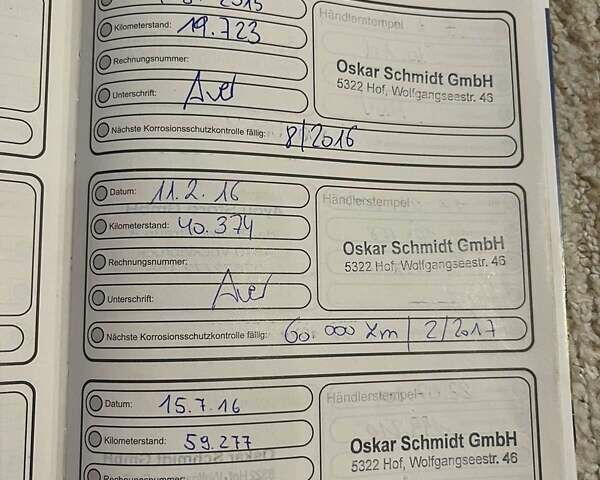 2015
Händlerstempel
Kilometerstand: 19.723
Rechnungsnummer:
Oskar Schmidt GmbH
5322 Hof, Wolfgangseestr. 46
Unterschrift:
Nächste Korrosionsschutzkontrolle fällig: 8/2016
Datum: 11.2.16
Händlerstempel
Kilometerstand: 40.374
Oskar Schmidt GmbH
5322 Hof, Wolfgangseestr. 46
Rechnungsnummer:
Unterschrift:
Nächste Korrosionsschutzkontrolle fällig: 60.000 km / 2/2017
Datum: 15.7.16
Händlerstempel
Kilometerstand: 59.277
Oskar Schmidt GmbH
5322 Hof, Wolfgangseestr. 46
Rechnungsnummer: